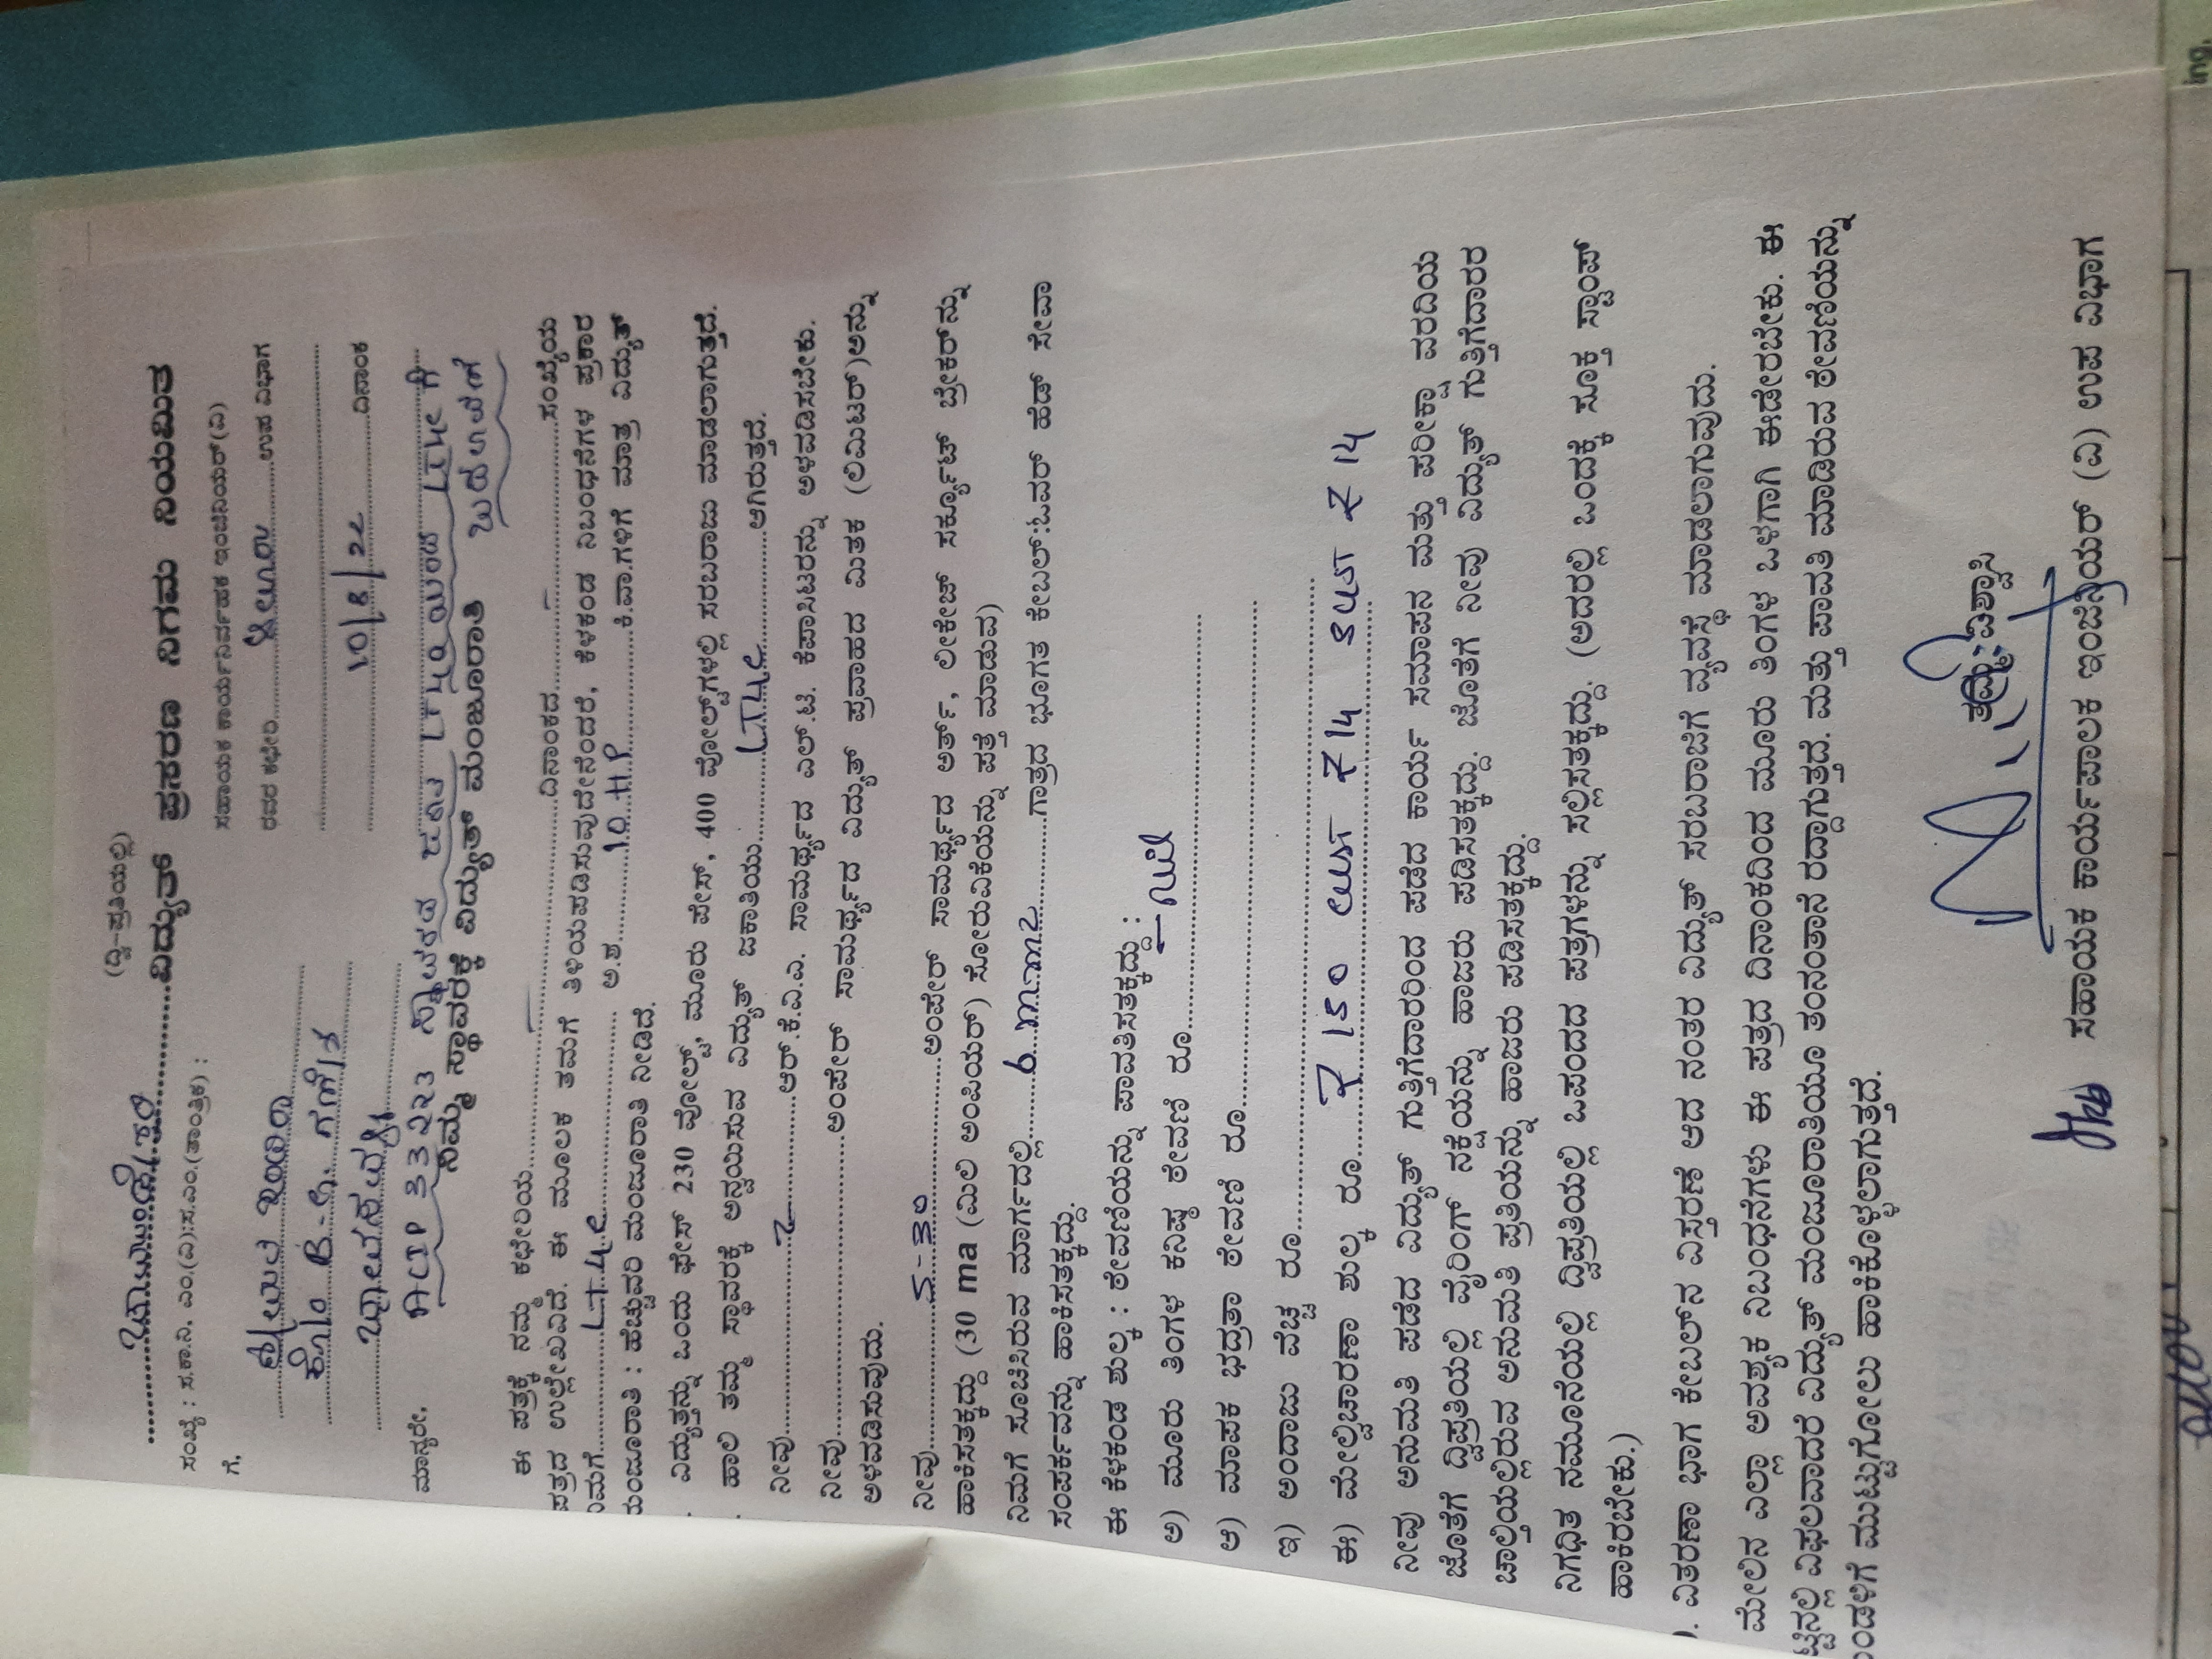 (ದ್ವಿ-ಪ್ರತಿಯಲ್ಲಿ)
ಚಾಮುಂಡೇಶ್ವರಿ ವಿದ್ಯುತ್ ಪ್ರಸರಣ ನಿಗಮ ನಿಯಮಿತ
ಸಂಖ್ಯೆ : ಸ.ಕಾ.ನಿ. ಎಂ.(ವಿ):ಸ.ಎಂ.(ತಾಂತ್ರಿಕ) :
ಸಹಾಯಕ ಕಾರ್ಯನಿರ್ವಾಹಕ ಇಂಜಿನಿಯರ್(ವಿ)
ಗೆ,
ರವರ ಕಛೇರಿ ಬೇಲೂರು ಉಪ ವಿಭಾಗ
ಕೋಂ B.C.
10/8/22 ದಿನಾಂಕ
ಮಾನ್ಯರೇ,
ACIP 33223 ಸ್ಥಾವರದ LT4C ಗೆ
ನಿಮ್ಮ ಸ್ಥಾವರಕ್ಕೆ ವಿದ್ಯುತ್ ಮಂಜೂರಾತಿ
ಈ ಪತ್ರಕ್ಕೆ ನಮ್ಮ ಕಛೇರಿಯ ದಿನಾಂಕದ ಸಂಖ್ಯೆಯ
ಪತ್ರದ ಉಲ್ಲೇಖವಿದೆ. ಈ ಮೂಲಕ ತಮಗೆ ತಿಳಿಯಪಡಿಸುವುದೇನೆಂದರೆ, ಕೆಳಕಂಡ ನಿಬಂಧನೆಗಳ ಪ್ರಕಾರ
ನಿಮಗೆ LT4C ಅ.ಶ. 10 HP ಕಿ.ವಾ.ಗಳಿಗೆ ಮಾತ್ರ ವಿದ್ಯುತ್
ಮಂಜೂರಾತಿ : ಹೆಚ್ಚುವರಿ ಮಂಜೂರಾತಿ ನೀಡಿದೆ.
ವಿದ್ಯುತ್ತನ್ನು ಒಂದು ಫೇಸ್ 230 ವೋಲ್ಟ್, ಮೂರು ಫೇಸ್, 400 ವೋಲ್ಟ್‌ಗಳಲ್ಲಿ ಸರಬರಾಜು ಮಾಡಲಾಗುತ್ತದೆ.
ಹಾಲಿ ತಮ್ಮ ಸ್ಥಾವರಕ್ಕೆ ಅನ್ವಯಿಸುವ ವಿದ್ಯುತ್ ಜಕಾತಿಯು LT4C ಆಗಿರುತ್ತದೆ.
ನೀವು 2 ಆರ್.ಕೆ.ವಿ.ಎ. ಸಾಮರ್ಥ್ಯದ ಎಲ್.ಟಿ. ಕೆಪಾಸಿಟರನ್ನು ಅಳವಡಿಸಬೇಕು.
ನೀವು ಅಂಪೇರ್ ಸಾಮರ್ಥ್ಯದ ವಿದ್ಯುತ್ ಪ್ರವಾಹದ ಮಿತಕ (ಲಿಮಿಟರ್)ಅನ್ನು
ಅಳವಡಿಸುವುದು.
ನೀವು 5-30 ಅಂಪೇರ್ ಸಾಮರ್ಥ್ಯದ ಅರ್ತ್, ಲೀಕೇಜ್ ಸರ್ಕ್ಯೂಟ್ ಬ್ರೇಕರ್‌ನ್ನು
ಹಾಕಿಸತಕ್ಕದ್ದು (30 ma (ಮಿಲಿ ಅಂಪಿಯರ್) ಸೋರುವಿಕೆಯನ್ನು ಪತ್ತೆ ಮಾಡುವ)
ನಿಮಗೆ ಸೂಚಿಸಿರುವ ಮಾರ್ಗದಲ್ಲಿ 6 mm2 ಗಾತ್ರದ ಭೂಗತ ಕೇಬಲ್:ಓವರ್ ಹೆಡ್ ಸೇವಾ
ಸಂಪರ್ಕವನ್ನು ಹಾಕಿಸತಕ್ಕದ್ದು.
ಈ ಕೆಳಕಂಡ ಶುಲ್ಕ : ಠೇವಣಿಯನ್ನು ಪಾವತಿಸತಕ್ಕದ್ದು :
ಅ) ಮೂರು ತಿಂಗಳ ಕನಿಷ್ಠ ಠೇವಣಿ ರೂ. Nil
ಆ) ಮಾಪಕ ಭದ್ರತಾ ಠೇವಣಿ ರೂ.
ಇ) ಅಂದಾಜು ವೆಚ್ಚ ರೂ.
ಈ) ಮೇಲ್ವಿಚಾರಣಾ ಶುಲ್ಕ ರೂ. ₹ 150 CUST ₹ 14 SUST ₹ 14
ನೀವು ಅನುಮತಿ ಪಡೆದ ವಿದ್ಯುತ್ ಗುತ್ತಿಗೆದಾರರಿಂದ ಪಡೆದ ಕಾರ್ಯ ಸಮಾಪನ ಮತ್ತು ಪರೀಕ್ಷಾ ವರದಿಯ
ಜೊತೆಗೆ ದ್ವಿಪ್ರತಿಯಲ್ಲಿ ವೈರಿಂಗ್ ನಕ್ಷೆಯನ್ನು ಹಾಜರು ಪಡಿಸತಕ್ಕದ್ದು. ಜೊತೆಗೆ ನೀವು ವಿದ್ಯುತ್ ಗುತ್ತಿಗೆದಾರರ
ಚಾಲ್ತಿಯಲ್ಲಿರುವ ಅನುಮತಿ ಪ್ರತಿಯನ್ನು ಹಾಜರು ಪಡಿಸತಕ್ಕದ್ದು.
ನಿಗಧಿತ ನಮೂನೆಯಲ್ಲಿ ದ್ವಿಪ್ರತಿಯಲ್ಲಿ ಒಪಂದದ ಪತ್ರಗಳನ್ನು ಸಲ್ಲಿಸತಕ್ಕದ್ದು. (ಅದರಲ್ಲಿ ಒಂದಕ್ಕೆ ಸೂಕ್ತ ಸ್ಟಾಂಪ್
ಹಾಕಿರಬೇಕು.)
ವಿತರಣಾ ಭಾಗ ಕೇಬಲ್‌ನ ವಿಸ್ತರಣೆ ಆದ ನಂತರ ವಿದ್ಯುತ್ ಸರಬರಾಜಿಗೆ ವ್ಯವಸ್ಥೆ ಮಾಡಲಾಗುವುದು.
ಮೇಲಿನ ಎಲ್ಲಾ ಅವಶ್ಯಕ ನಿಬಂಧನೆಗಳು ಈ ಪತ್ರದ ದಿನಾಂಕದಿಂದ ಮೂರು ತಿಂಗಳ ಒಳಗಾಗಿ ಈಡೇರಬೇಕು. ಈ
ಟ್ಟಿನಲ್ಲಿ ವಿಫಲವಾದರೆ ವಿದ್ಯುತ್ ಮಂಜೂರಾತಿಯೂ ತಂನಂತಾನೆ ರದ್ದಾಗುತ್ತದೆ. ಮತ್ತು ಪಾವತಿ ಮಾಡಿರುವ ಠೇವಣಿಯನ್ನು
ಂಡಳಿಗೆ ಮುಟ್ಟುಗೋಲು ಹಾಕಿಕೊಳ್ಳಲಾಗುತ್ತದೆ.
ತಮ್ಮ ವಿಶ್ವಾಸಿ
ಸಹಾಯಕ ಕಾರ್ಯಪಾಲಕ ಇಂಜಿನಿಯರ್ (ವಿ) ಉಪ ವಿಭಾಗ
ing,